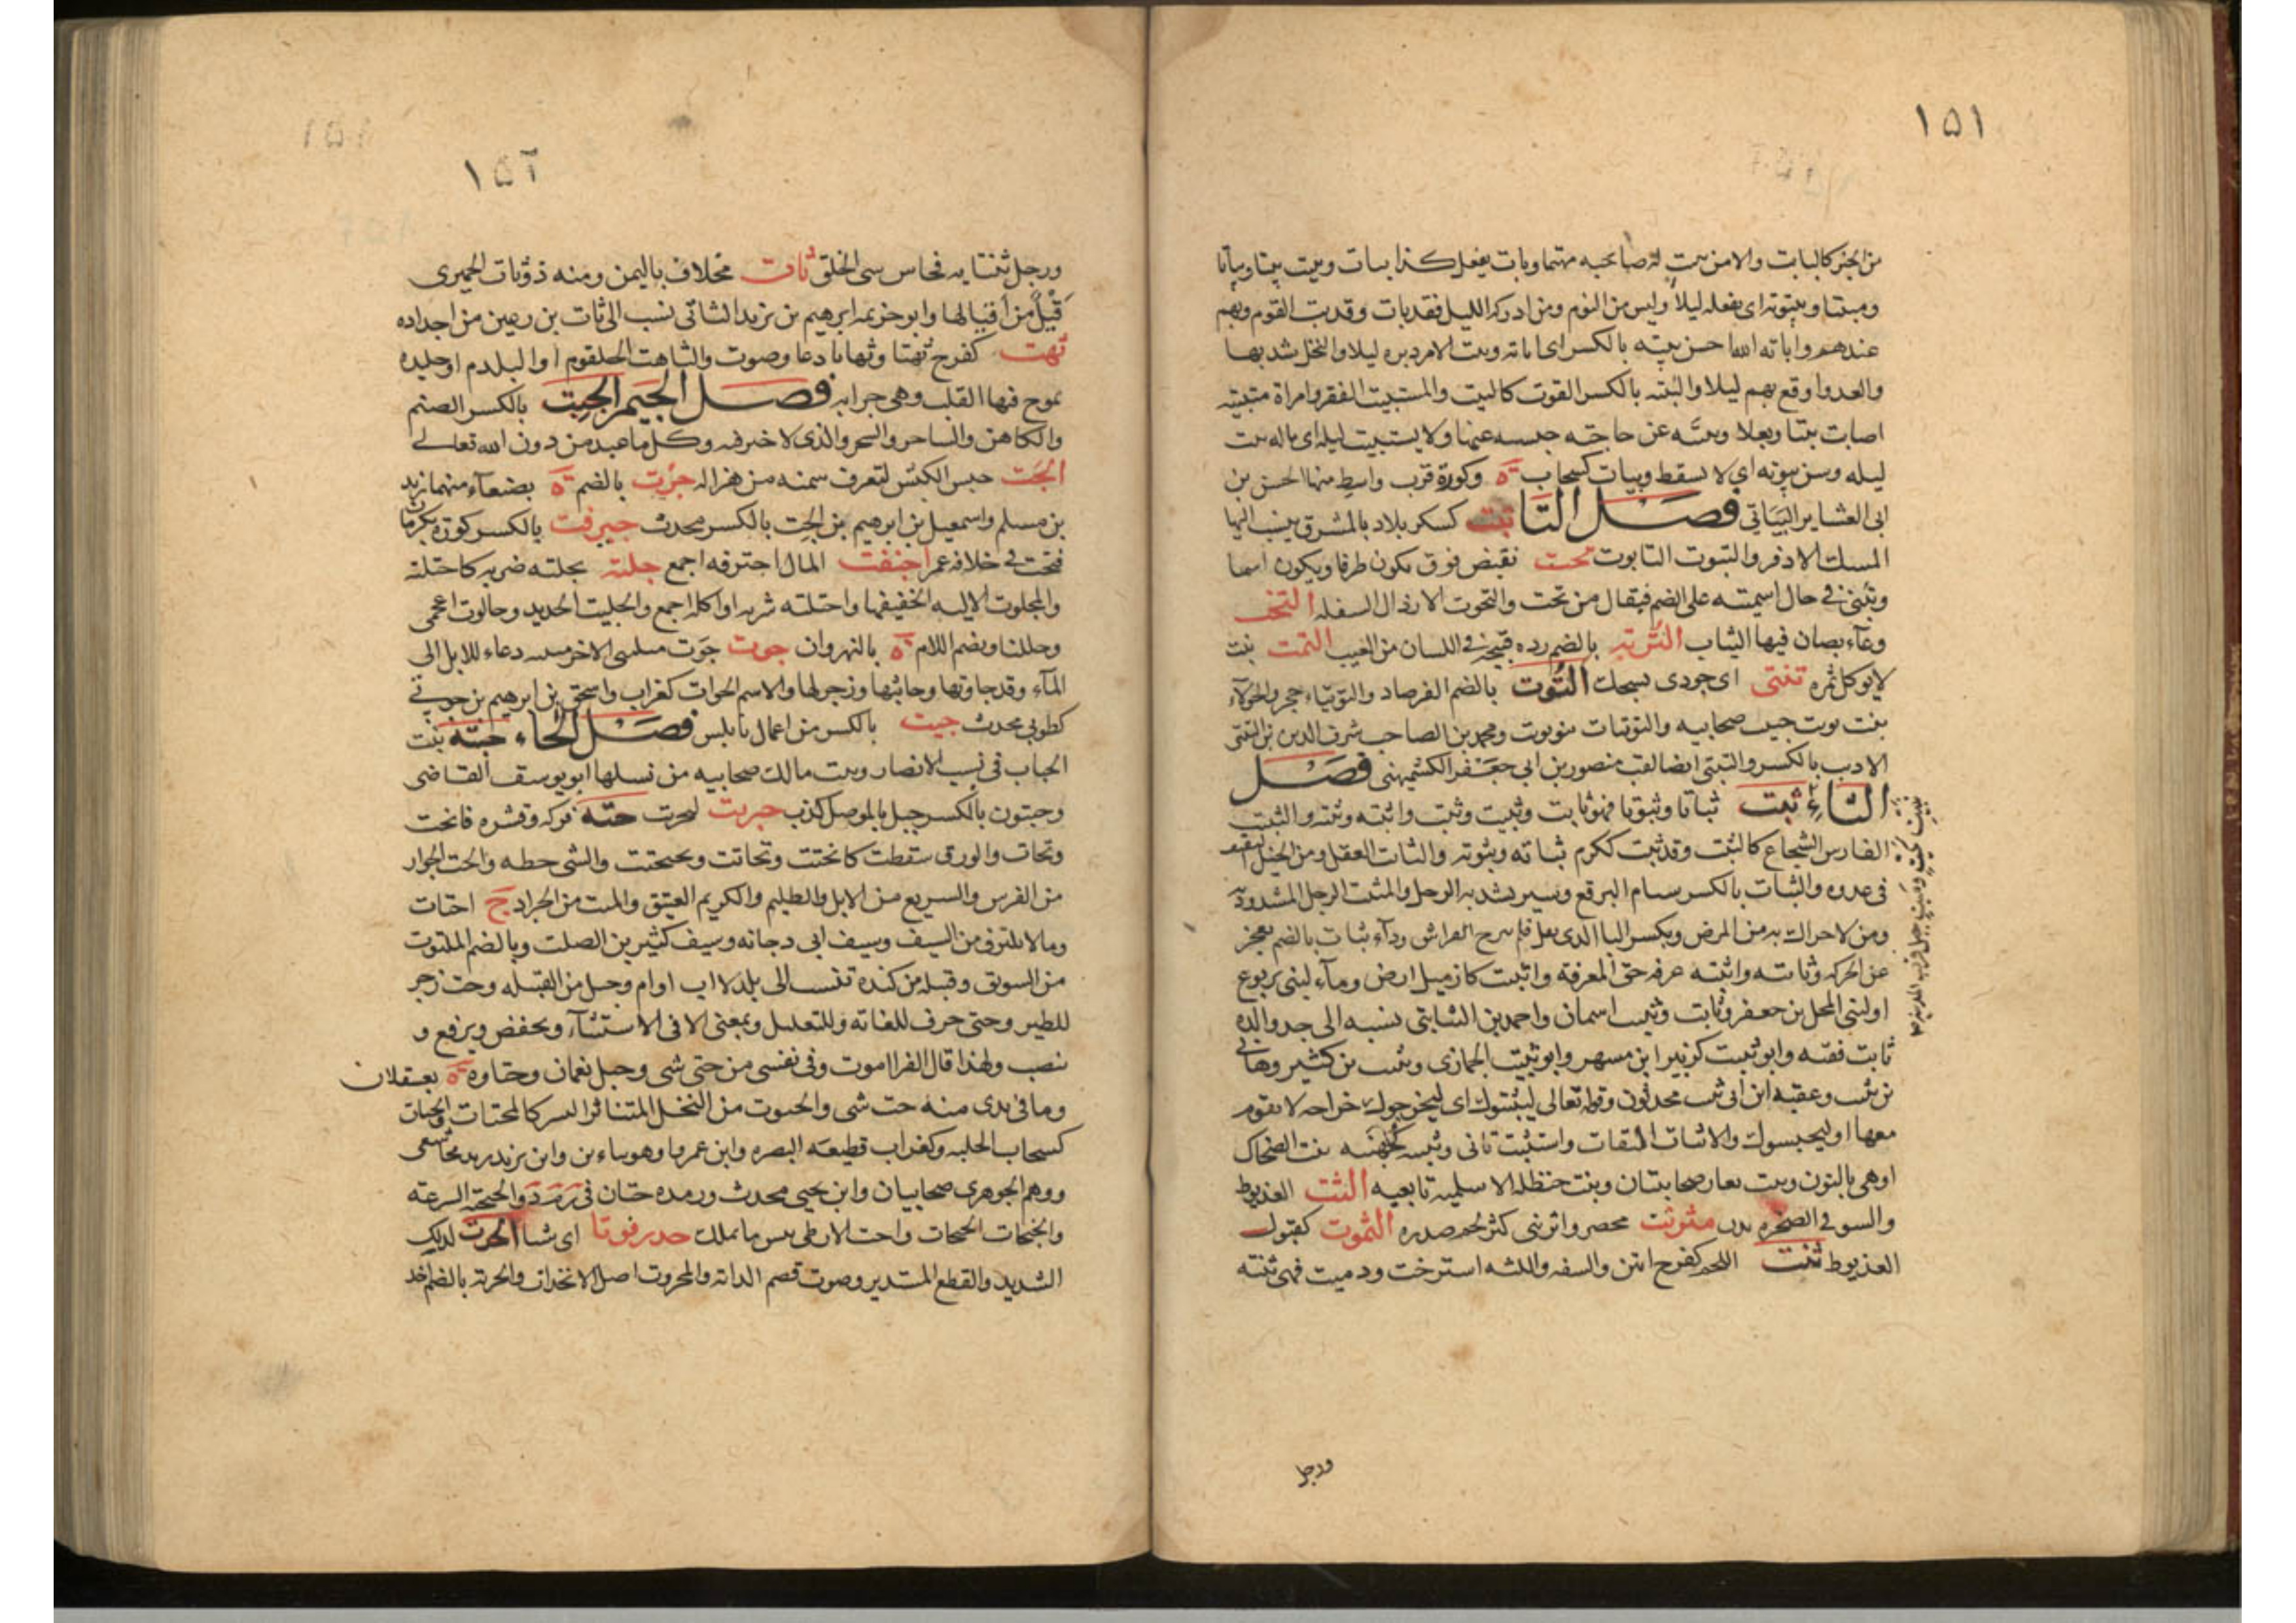 ١٥١
من الخبز كالبايت والامر يبيت له صاحبه مهتما وبات يفعل كذا يبات ويبيت بيتا وبياتا
ومبيتا وبيتوته اى يفعله ليلا وليس من النوم ومن ادركه الليل فقد بات وقد بت القوم وبهم
عندهم واباته الله احسن بيته بالكسر اى اباته وبيت الامر دبره ليلا والنخل شذبها
والعدو اوقع بهم ليلا والبيته بالكسر القوت كالبيت والمستبيت الفقير وامراة متبيته
اصابت بيتا وبعلا وبيته عن حاجته حبسه عنها ولا يستبيت ليله اى ماله بيت
ليله وسن بيوته اى لا تسقط وبيات كسحاب ة وكورة قرب واسط منها الحسن بن
ابى العشاير البياتى فصل التا تبت كسكر بلاد بالمشرق ينسب اليها
المسك الاذفر والتبوت التابوت تحت نقيض فوق يكون ظرفا ويكون اسما
ويبنى فى حال اسميته على الضم فيقال من تحت والتحوت الارذال السفله التخت
وعاء يصان فيها الثياب الترتة بالضم رده قبيحة فى اللسان من العيب التمت نبت
لا يوكل ثمره تنتى اى جودى نسجك التوت بالضم الفرصاد والتوتياء حجر والحولاء
بنت تويت حبيب صحابيه والتويتات بنو تويت ومحمد بن الصاحب شرف الدين بن التيتى
الاديب بالكسر والتيتى ايضا لقب منصور بن ابى جعفر الكشميهنى فصل
الثاء ثبت ثباتا وثبوتا فهو ثابت وثبيت وثبت واثبته وثبته والثبيت
الفارس الشجاع كالثبت وقد ثبت ككرم ثباته وثبوته والثابت العقل ومن الخيل الثقف
فى عدوه والثبات بالكسر سام البرقع وسير يشد به الرحل والمثبت الرحل المشدود به
ومن لا حراك به من المرض وبكسر البا الذى ثقل فلم يبرح الفراش وداء ثبات بالضم معجز
عن الحركه وثابته واثبته عرفه حق المعرفة واثبيت كازميل ارض وماء لبنى يربوع
او لبنى المحل بن جعفر وثابت وثبيت اسمان واحمد بن الثابتى نسبه الى جد والده
ثابت فقيه وابو ثبيت كزبير ابن مسهر وابو ثبيت الجمازى وثبيت بن كثير وهانى
بن ثبيت وعقبه ابن ابى ثبيت محدثون وقوله تعالى ليثبتوك اى ليخرجوك خراجه لا تقوم
معها او ليحبسوك والاثبات الثقات واستثبت تانى وثبيته كجهينه بنت الضحاك
او هى بالنون وبنت يعار صحابيتان وبنت حنظله الاسلميه تابعيه الثت العذيوط
والشق فى الصخره بدن مثرنت مخصب واثرنتى كثر لحم صدره الثموت كقبول
العذيوط ثنت اللحم كفرح انتن والشفه واللثه استرخت ودميت فهى ثنته
ورجل
١٥٢
ورجل ثنتايه فحاش سى الخلق ثات مخلاف باليمن ومنه ذو ثات الحميرى
قيل من اقيالها وابو خزيمه ابرهيم بن يزيد الثاتى نسب الى ثات بن رعين من اجداده
ثهت كفرح ثهتا وثهاتا دعا وصوت والثاهت الحلقوم او البلدم او جليده
يموج فيها القلب وهى جرابه فصل الجيم الجبت بالكسر الصنم
والكاهن والساحر والسحر والذى لا خير فيه وكل ما عبد من دون الله تعالى
الجت حبس الكبش لتعرف سمنه من هزاله جرت بالضم ة بصنعاء منها يزيد
بن مسلم واسمعيل بن ابرهيم بن الجت بالكسر محدث جيرفت بالكسر كورة بكرمان
فتحت فى خلافه عمر اجتفت المال اجترفه اجمع جلته يجلته ضربه كاجتلته
والمجلوت الاليه الخفيفها واجتلته شربه او اكله اجمع والجليت الجليد وجالوت اعجمى
وجللتا وبضم اللام ة بالنهروان جوت جوت مثلثى الاخر مبنيه دعاء للابل الى
الماء وقد جاوتها وجايتها وزجر لها والاسم الجوات كغراب واسحق بن ابرهيم بن جوتى
كطوبى محدث جيت بالكسر من اعمال نابلس فصل الحاء حبته بنت
الحباب فى نسب الانصار وبنت مالك صحابيه من نسلها ابو يوسف القاضى
وحبتون بالكسر جبل بالموصل كذب حبريت لحبرت حته فركه وقشره فانحت
وتحات والورق سقطت كانحتت وتحاتت وتحتحتت والشى حطه والحت الجواد
من الفرس والسريع من الابل والظليم والكريم العتيق والميت من الجراد ج احتات
وما لا يلتزق من السيف وسيف ابى دجانه وسيف كثير بن الصلت وبالضم الملتوت
من السويق وقبيله من كنده تنسب الى بلد لا اب او ام وجبل من القبله وحت زجر
للطير وحتى حرف للغاته وللتعليل وبمعنى الا فى الاستثناء ويخفض ويرفع و
ينصب ولهذا قال الفرا اموت وفى نفسى من حتى شى وجبل بعمان وحتاوه ة بعسقلان
وما فى يدى منه حت شى والحتوت من النخل المتناثر البسر كالمحتات والحتات
كسحاب الجلبه وكغراب قطيعه البصره وابن عمرو او هو بباءين وابن يزيد بيد مجاشعى
ووهم الجوهرى صحابيان وابن يحيى محدث ورمده حتان فى ر م د والحتحته السرعه
والحتحات الحثحاث واحت الارطى يبس ما تملك حدرفوتا اى شيا الحرت الدلك
الشديد والقطع المستدير وصوت قضم الدابه والمحروت اصل الانجذان والحرته بالضم اخذ